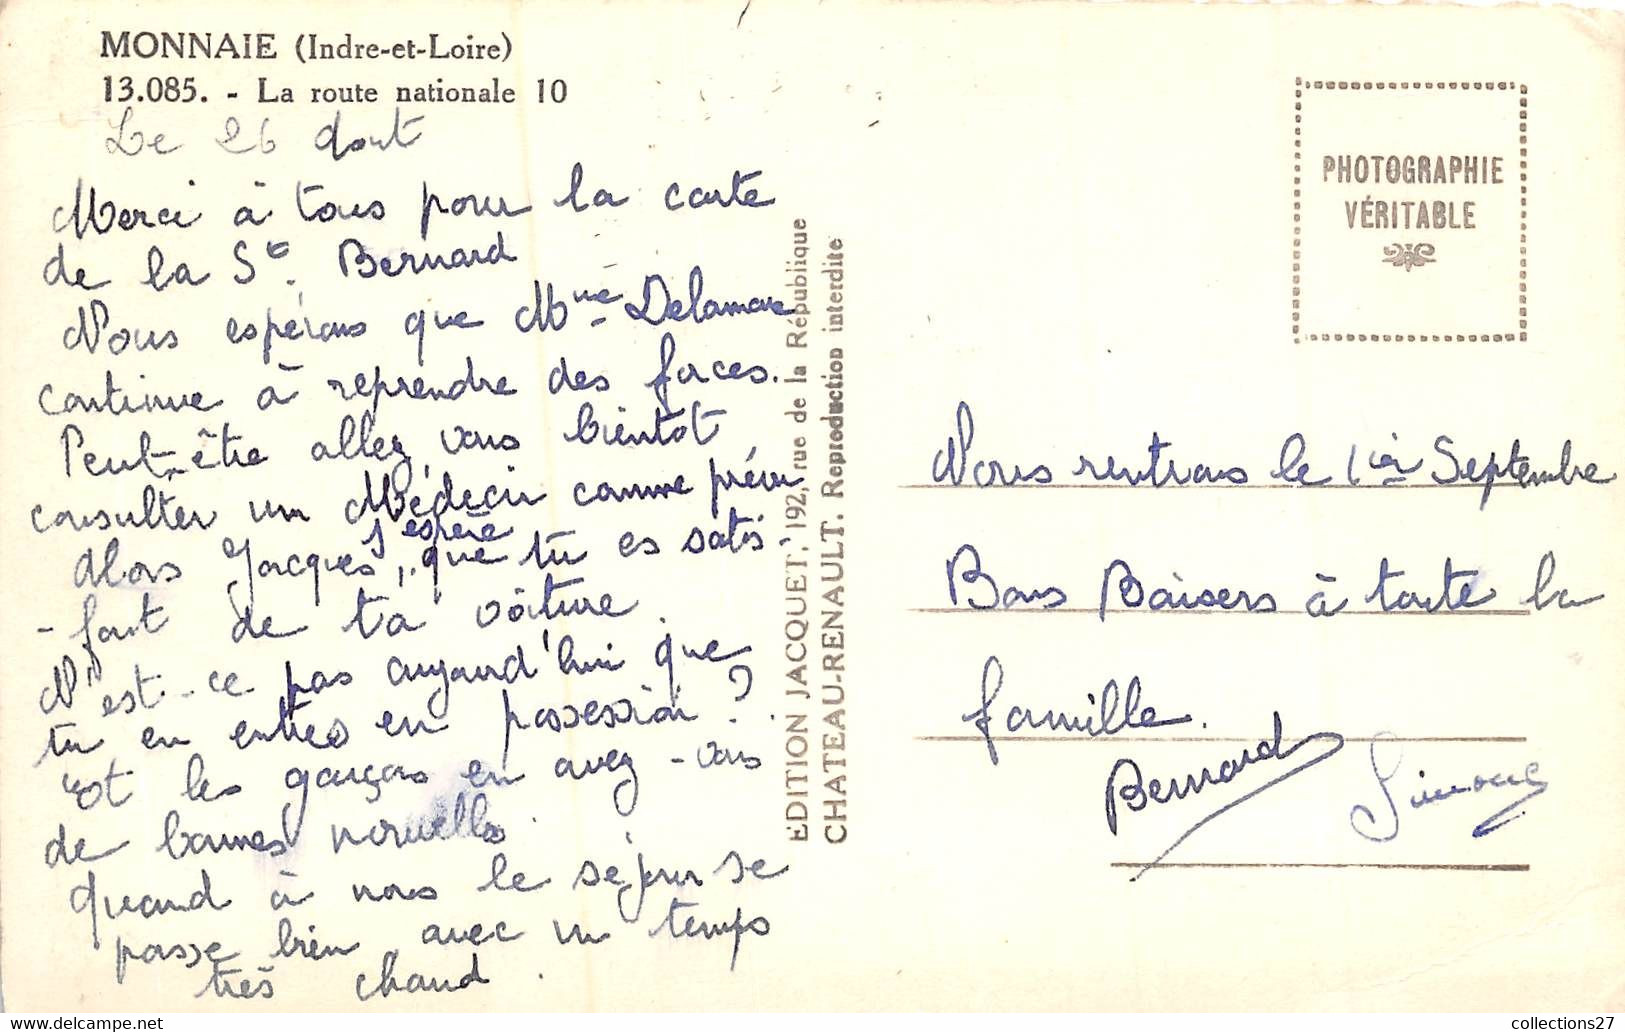 MONNAIE (Indre-et-Loire)
13.085. - La route nationale 10
Le 26 Aout
Merci à tous pour la carte
de la St. Bernard
Nous espérons que Mme Delamare
continue à reprendre des forces.
Peut-être allez vous bientot
consulter un Médecin comme prévu
Alors Jacques, j'espère que tu es satis-
-fait de ta voiture
N'est-ce pas aujourd'hui que
tu en entres en possession ?
Et les garçons en avez-vous
de bonnes nouvelles.
Quand à nous le séjour se
passe bien avec un temps
très chaud.
EDITION JACQUET, 192, rue de la République
CHATEAU-RENAULT. Reproduction interdite
PHOTOGRAPHIE
VÉRITABLE
Nous rentrons le 1er Septembre
Bons Baisers à toute la
famille.
Bernard Simone
collections27